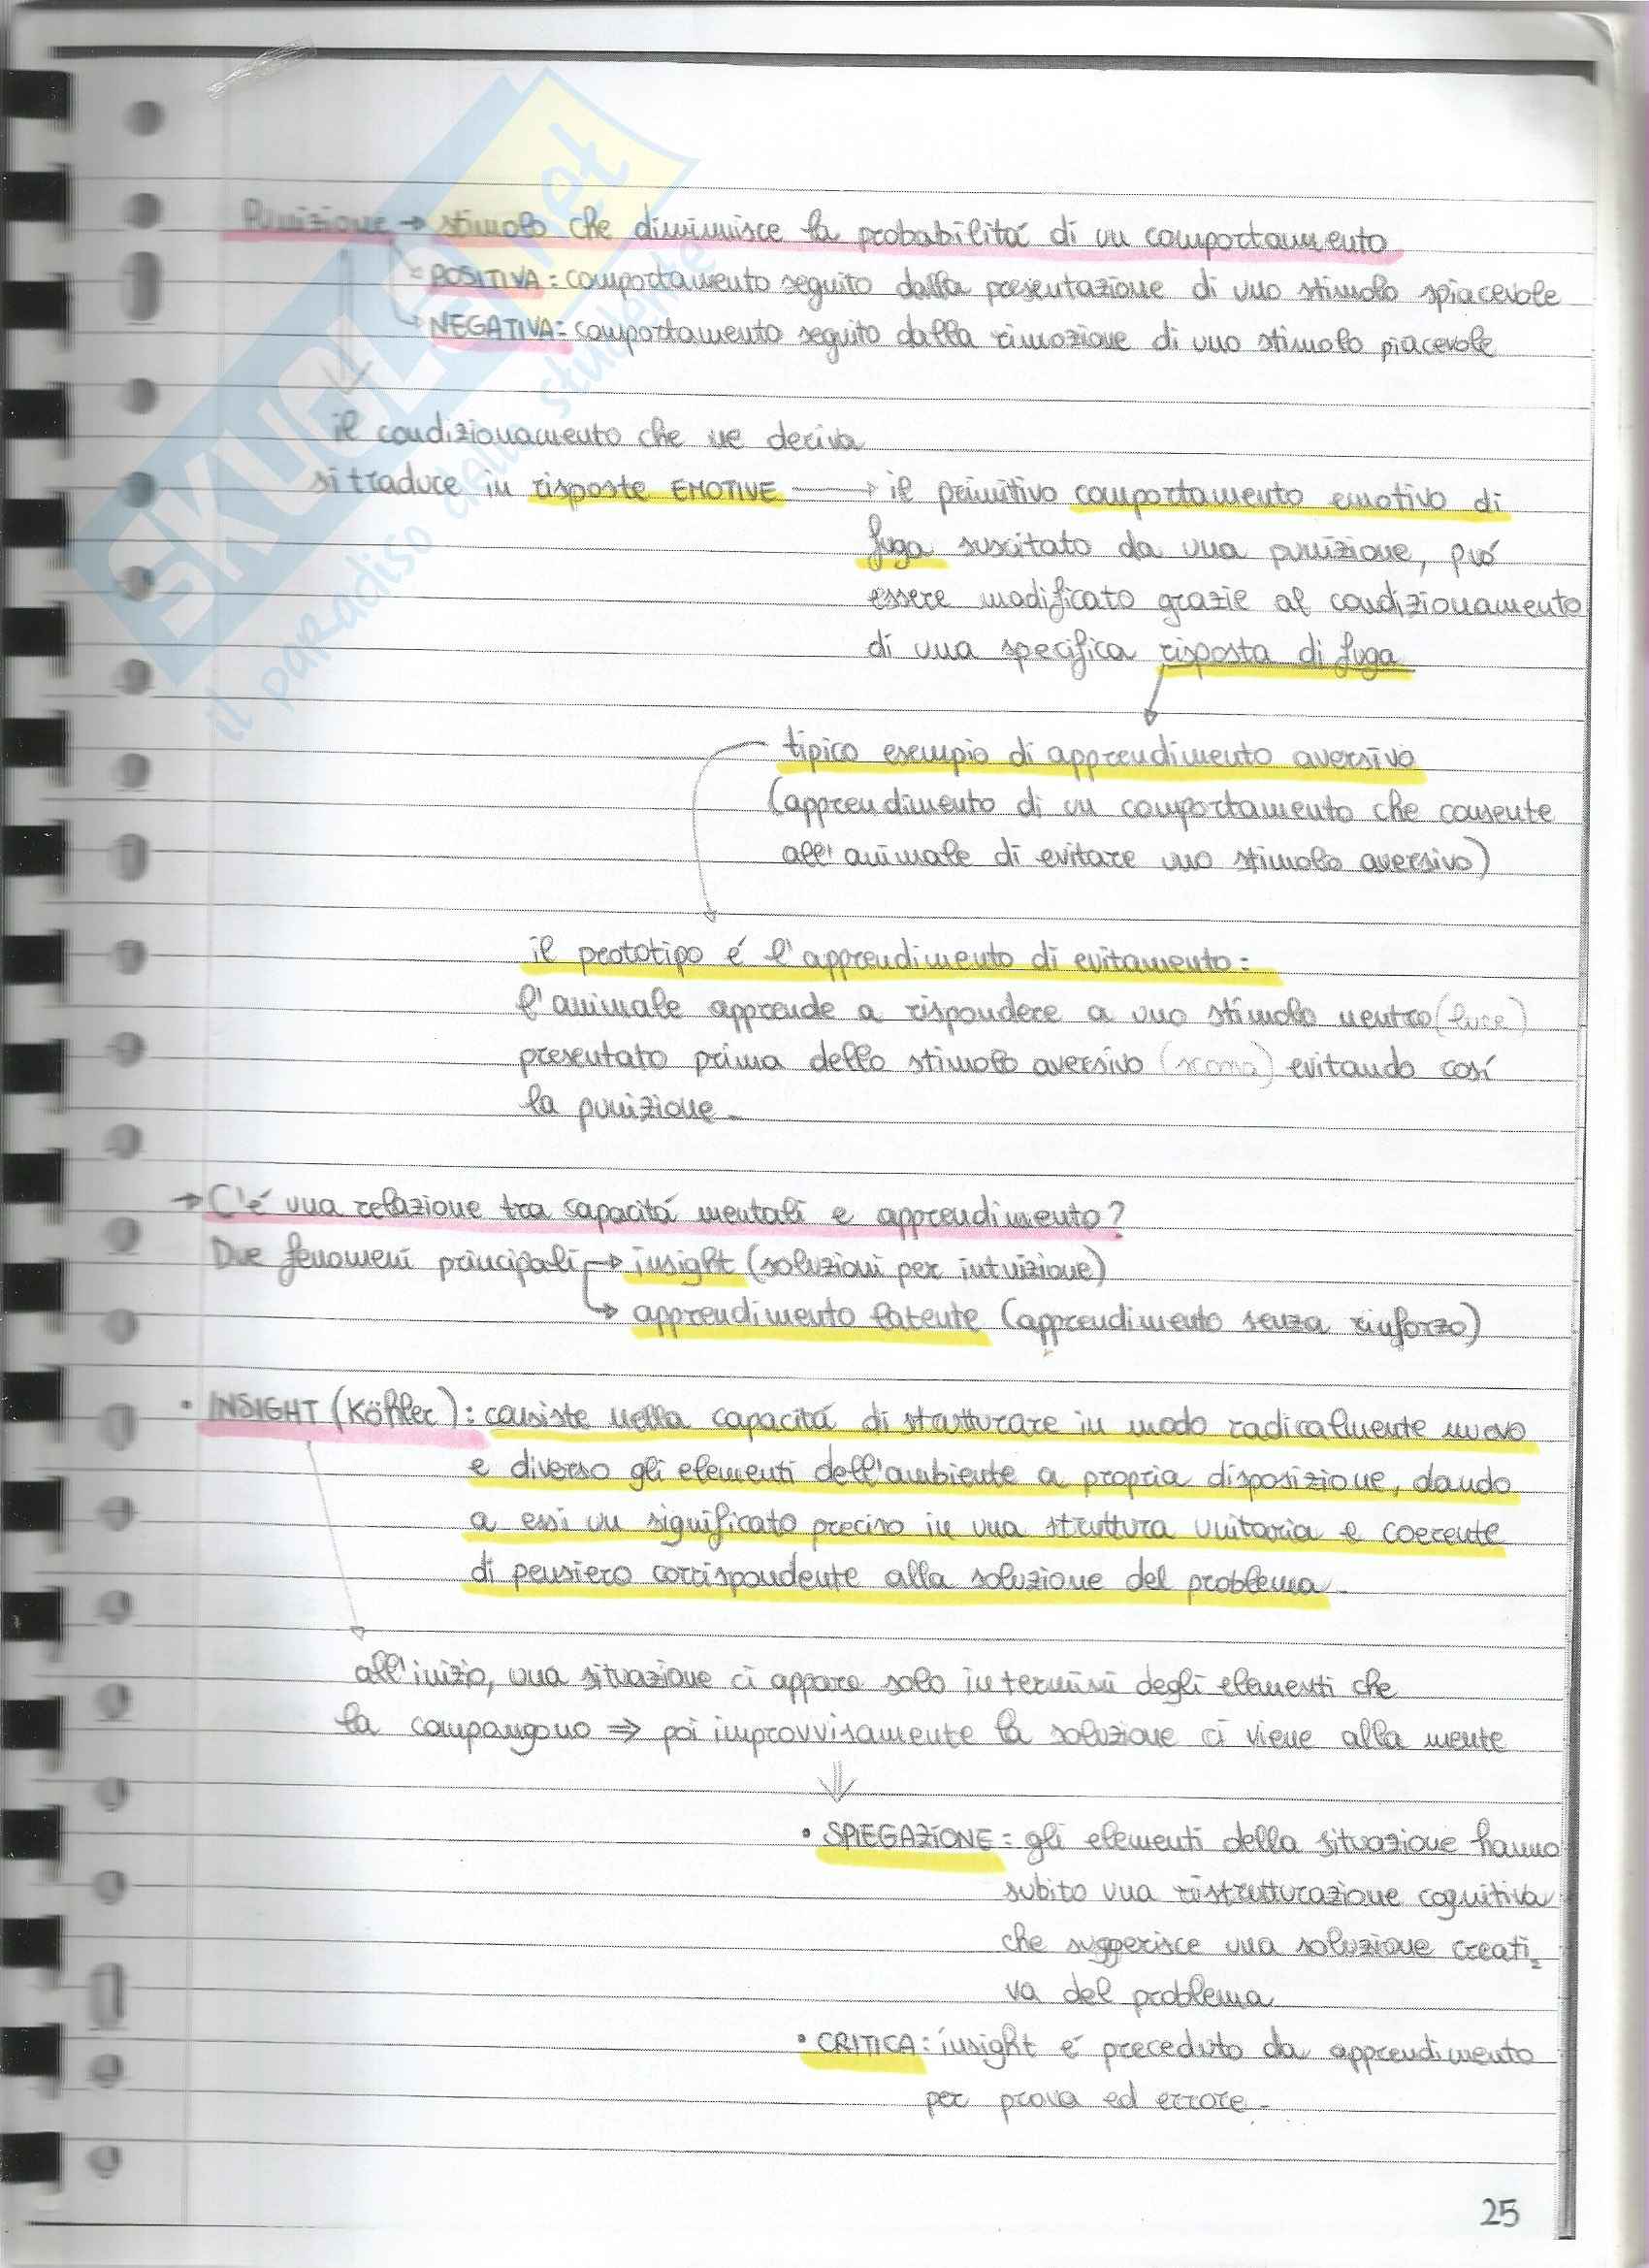 Punizione → stimolo che diminuisce la probabilitá di un comportamento
POSITIVA: comportamento seguito dalla presentazione di uno stimolo spiacevole
NEGATIVA: comportamento seguito dalla rimozione di uno stimolo piacevole
il condizionamento che ne deriva
si traduce in risposte EMOTIVE → il primitivo comportamento emotivo di
fuga suscitato da una punizione, puó
essere modificato grazie al condizionamento
di una specifica risposta di fuga
tipico esempio di apprendimento aversivo
(apprendimento di un comportamento che consente
all'animale di evitare uno stimolo aversivo)
il prototipo é l'apprendimento di evitamento:
l'animale apprende a rispondere a uno stimolo neutro (luce)
presentato prima dello stimolo aversivo (scossa) evitando cosí
la punizione.
→ C'é una relazione tra capacitá mentali e apprendimento?
Due fenomeni principali → insight (soluzioni per intuizione)
→ apprendimento latente (apprendimento senza rinforzo)
• INSIGHT (Köhler): consiste nella capacitá di strutturare in modo radicalmente nuovo
e diverso gli elementi dell'ambiente a propria disposizione, dando
a essi un significato preciso in una struttura unitaria e coerente
di pensiero corrispondente alla soluzione del problema.
all'inizio, una situazione ci appare solo in termini degli elementi che
la compongono ⇒ poi improvvisamente la soluzione ci viene alla mente
• SPIEGAZIONE: gli elementi della situazione hanno
subito una ristrutturazione cognitiva
che suggerisce una soluzione creati=
va del problema
• CRITICA: insight é preceduto da apprendimento
per prova ed errore.
25
SKUOLA.net
il paradiso dello studente